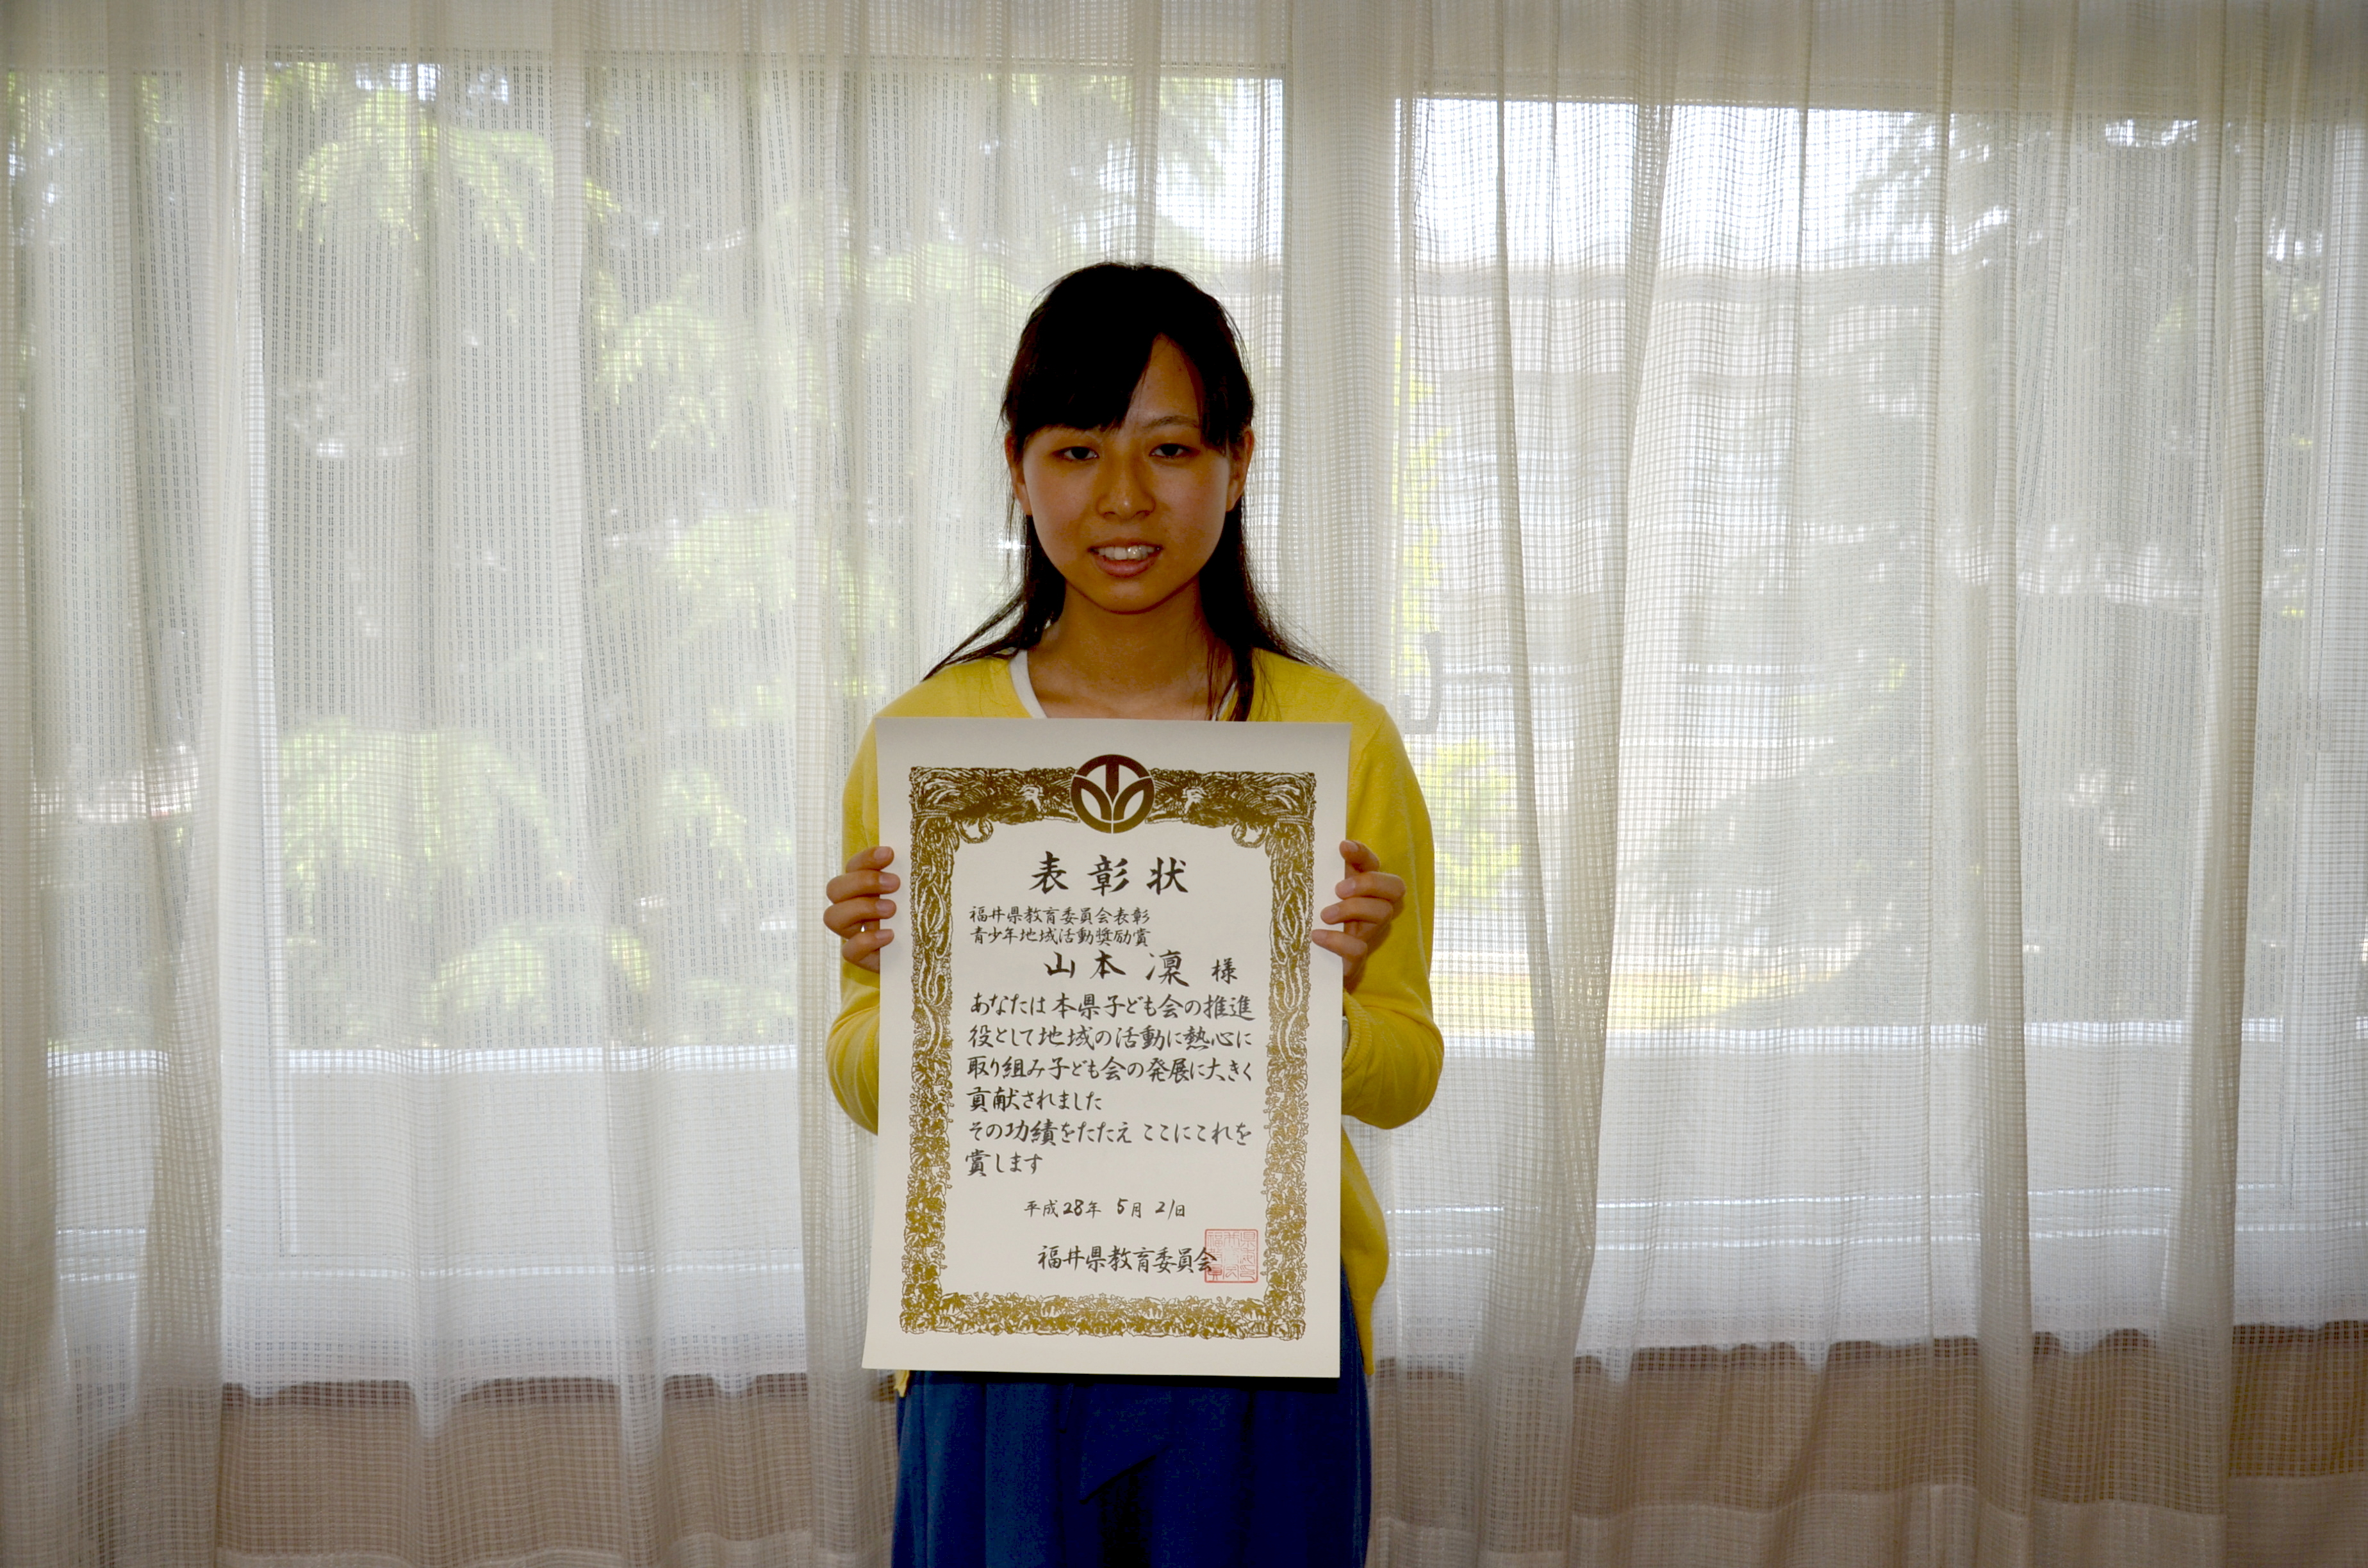 表彰状
福井県教育委員会表彰
青少年地域活動奨励賞
山本 凜 様
あなたは本県子ども会の推進
役として地域の活動に熱心に
取り組み子ども会の発展に大きく
貢献されました
その功績をたたえ ここにこれを
賞します
平成28年 5月 21日
福井県教育委員会